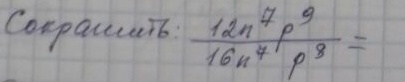 Сократить: \frac{12n^7 p^9}{16n^7 p^8} =